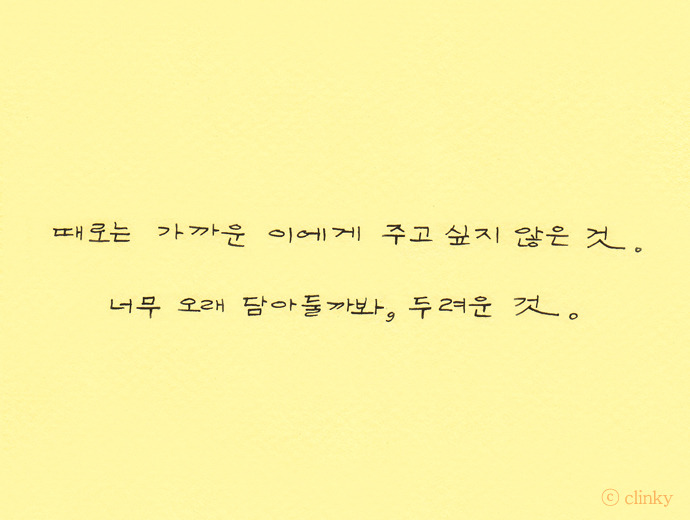 때로는 가까운 이에게 주고 싶지 않은 것.
너무 오래 담아둘까봐, 두려운 것.
ⓒ clinky